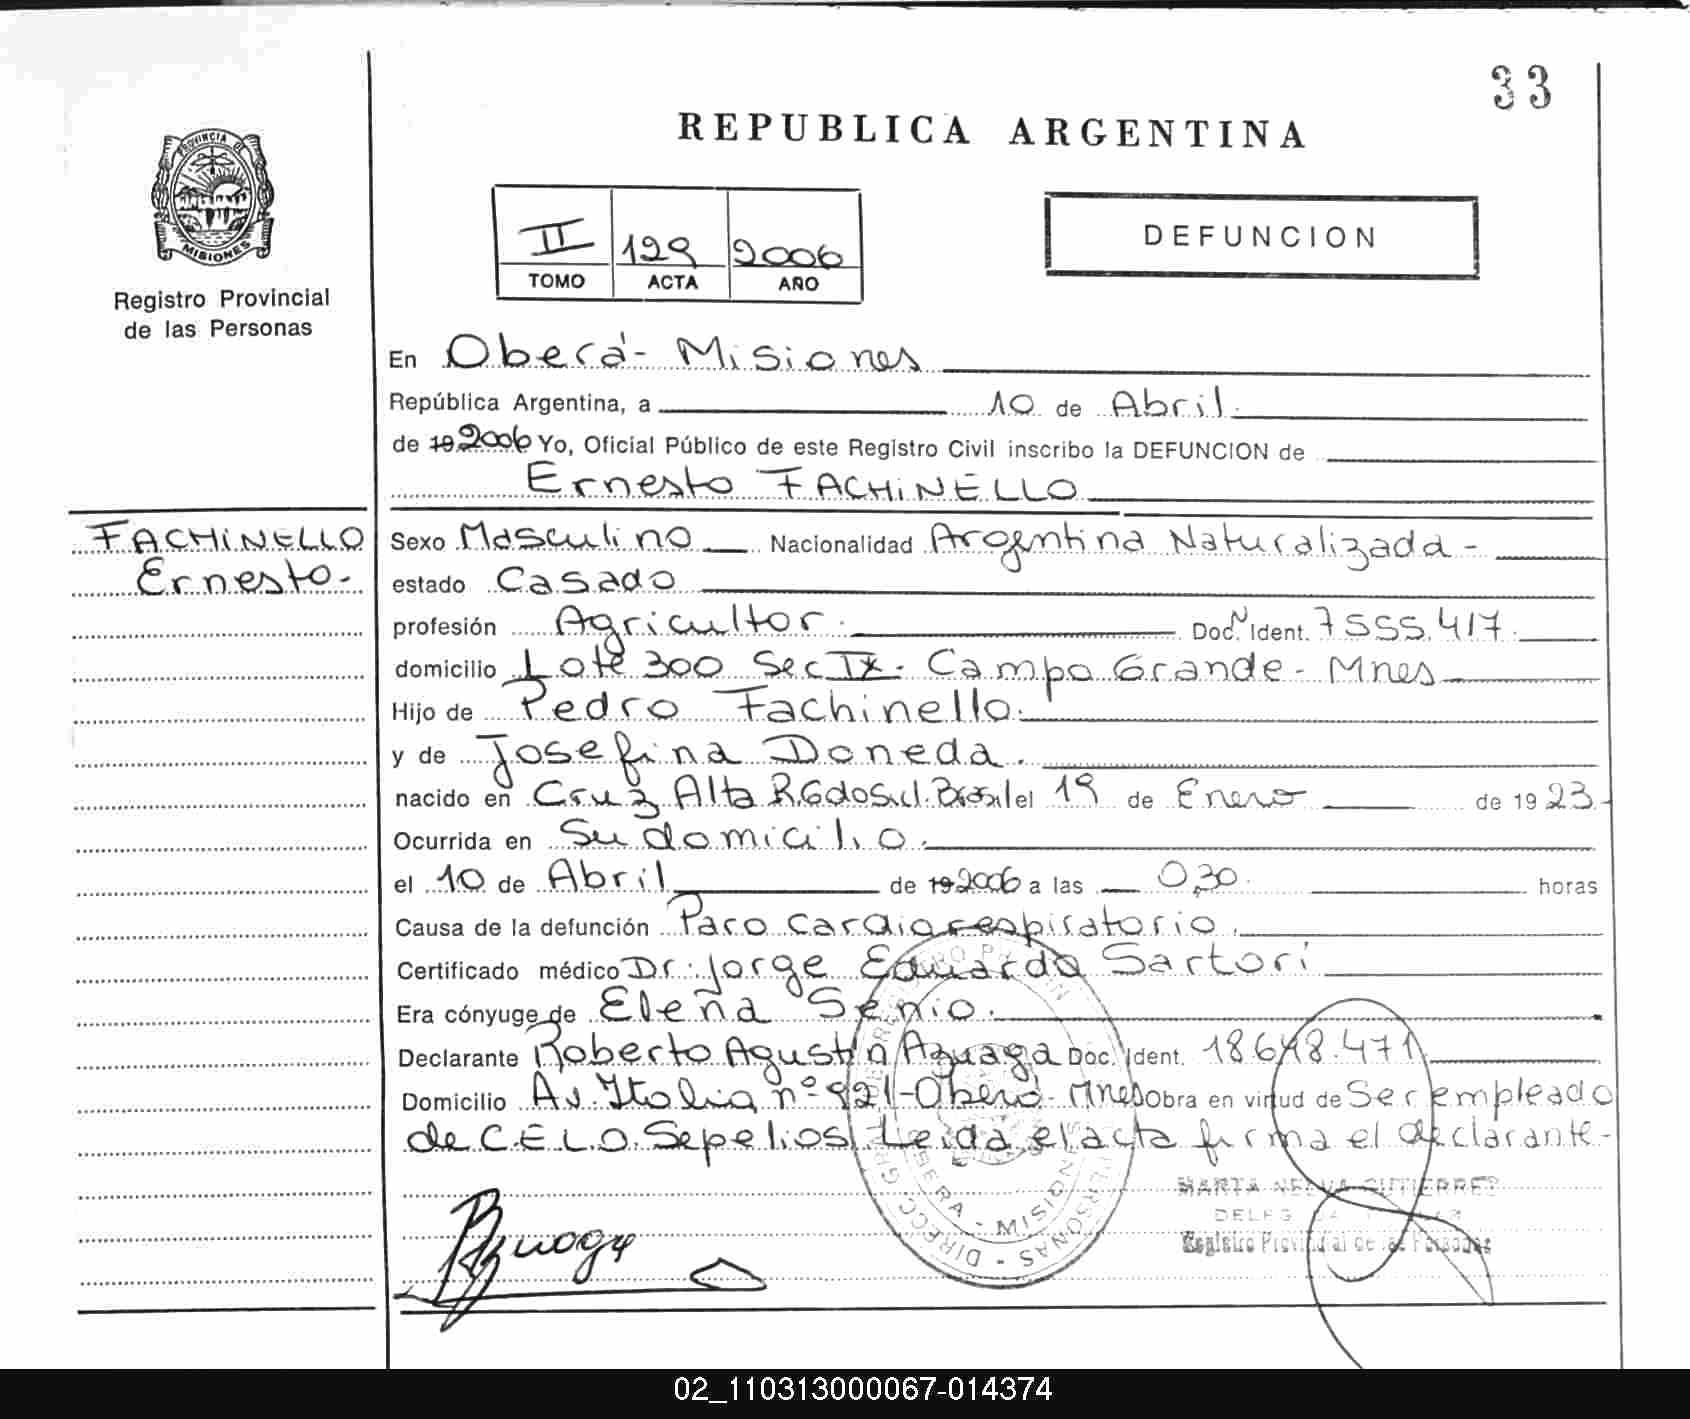 33
REPUBLICA ARGENTINA
PROVINCIA DE
MISIONES
Registro Provincial
de las Personas
II 129 2006
TOMO ACTA AÑO
DEFUNCION
En Oberá - Misiones
República Argentina, a 10 de Abril
de 19 2006 Yo, Oficial Público de este Registro Civil inscribo la DEFUNCION de
Ernesto FACHINELLO
FACHINELLO
Ernesto.
Sexo Masculino Nacionalidad Argentina Naturalizada -
estado Casado
profesión Agricultor. Doc. N Ident. 7555.417
domicilio Lote 300 Sec IX. Campo Grande - Mnes
Hijo de Pedro Fachinello.
y de Josefina Doneda.
nacido en Cruz Alta R.G do Sul. Brasil el 19 de Enero de 1923
Ocurrida en Su domicilio.
el 10 de Abril de 19 2006 a las 0,30 horas
Causa de la defunción Paro cardiorespiratorio.
Certificado médico Dr. Jorge Eduardo Sartori
Era cónyuge de Elena Senio.
Declarante Roberto Agustín Azuaga Doc. Ident. 18.648.471
Domicilio Av. Italia nº 921 - Oberá - Mnes Obra en virtud de Ser empleado
de C.E.L.O. Sepelios. Leida el acta firma el declarante -
MARTA NELVA GUTIERREZ
Registro Provincial de las Personas
02_110313000067-014374